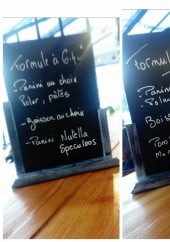 Formule à 6,
Panini au choix
Polar, pâtes
- Boisson au choix
- Panini Nutella
Speculoos
Formul
- Pani
- Pola
Boiss